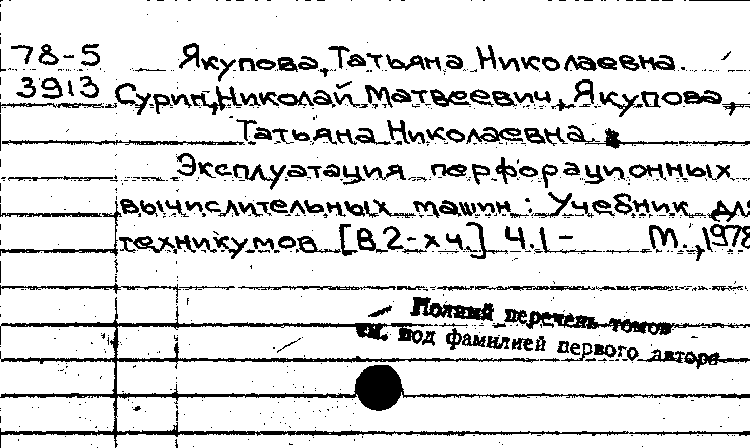 78-5 Якупова, Татьяна Николаевна.
3913 Сурин, Николай Матвеевич, Якупова,
Татьяна Николаевна.
Эксплуатация перфорационных
вычислительных машин: Учебник для
техникумов [В 2-х ч.] Ч.1 - М., 1978
Полный перечень томов
см. под фамилией первого автора